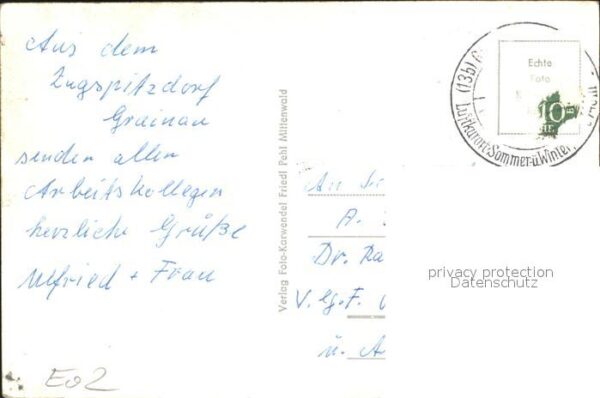 Aus dem
Zugspitzdorf
Grainau
senden allen
Arbeitskollegen
herzliche Grüße
Ulfried + Frau
E02
Verlag Foto-Karwendel Friedl Pehl Mittenwald
(13b)
Luftkurort Sommer-u. Winter
Echte
Foto
10
An
A.
Dr. Ra
V. G. F.
u. A
privacy protection
Datenschutz